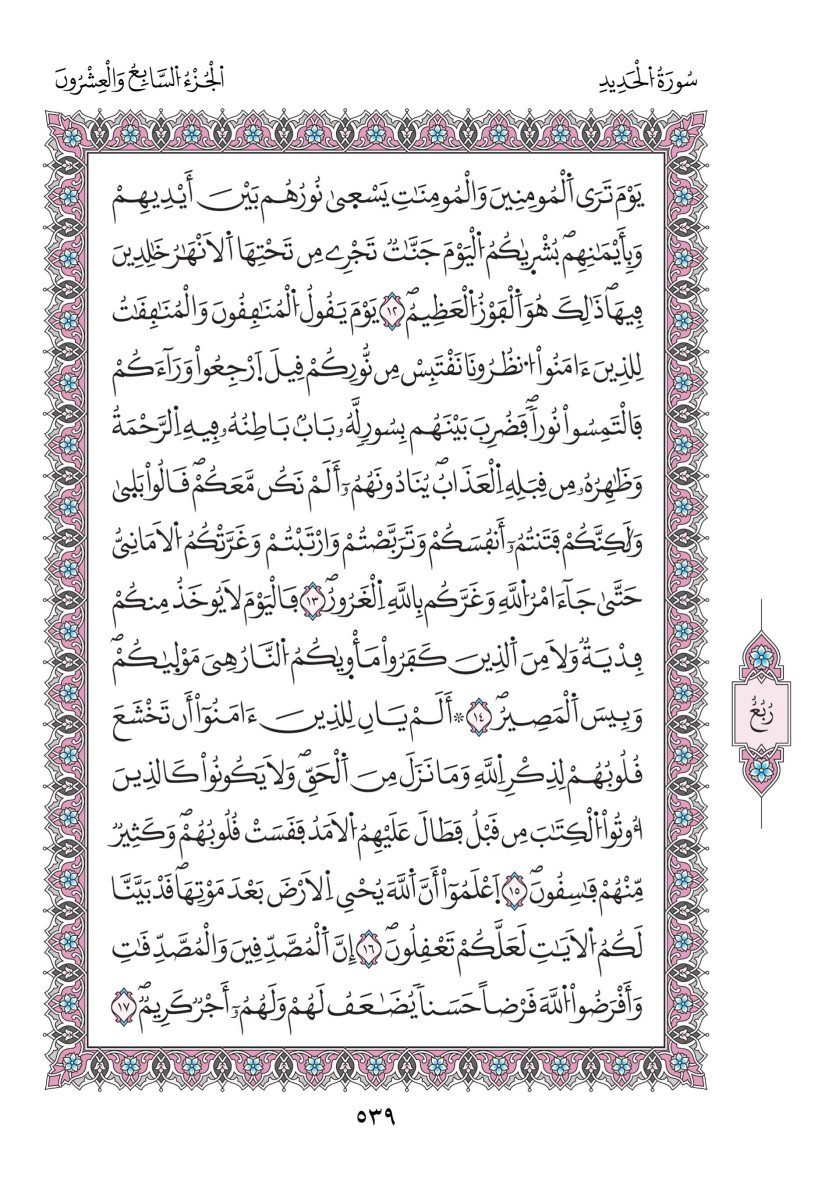 سُورَةُ الْحَدِيدِ
الْجُزْءُ السَّابِعُ وَالْعِشْرُونَ
يَوْمَ تَرَى اَ۬لْمُومِنِينَ وَالْمُومِنَٰتِ يَسْع۪ىٰ نُورُهُم بَيْنَ أَيْدِيهِمْ
وَبِأَيْمَٰنِهِمۖ بُشْر۪يٰكُمُ اُ۬لْيَوْمَ جَنَّٰتٞ تَجْرِے مِن تَحْتِهَا اَ۬لَانْهَٰرُ خَٰلِدِينَ
فِيهَاۖ ذَٰلِكَ هُوَ اَ۬لْفَوْزُ اُ۬لْعَظِيمُۖ ١٢ يَوْمَ يَقُولُ اُ۬لْمُنَٰفِقُونَ وَالْمُنَٰفِقَٰتُ
لِلذِينَ ءَامَنُواْ اُ۟نظُرُونَا نَقْتَبِسْ مِن نُّورِكُمْ قِيلَ اَ۪رْجِعُواْ وَرَآءَكُمْ
فَالْتَمِسُواْ نُوراٗۖ فَضُرِبَ بَيْنَهُم بِسُورٖ لَّهُۥ بَابُۢ بَاطِنُهُۥ فِيهِ اِ۬لرَّحْمَةُ
وَظَٰهِرُهُۥ مِن قِبَلِهِ اِ۬لْعَذَابُۖ يُنَادُونَهُمُۥٓ أَلَمْ نَكُن مَّعَكُمْۖ قَالُواْ بَل۪ىٰ
وَلَٰكِنَّكُمْ فَتَنتُمُۥٓ أَنفُسَكُمْ وَتَرَبَّصْتُمْ وَارْتَبْتُمْ وَغَرَّتْكُمُ اُ۬لَامَانِيُّ
حَتَّىٰ جَآءَ امْرُ اُ۬للَّهِ وَغَرَّكُم بِاللَّهِ اِ۬لْغَرُورُۖ ١٣ فَالْيَوْمَ لَا يُوخَذُ مِنكُمْ
فِدْيَةٞ وَلَا مِنَ اَ۬لذِينَ كَفَرُواْ مَأْو۪يٰكُمُ اُ۬لنَّارُ هِيَ مَوْل۪يٰكُمْۖ
وَبِيسَ اَ۬لْمَصِيرُۖ ١٤ ۞ أَلَمْ يَانِ لِلذِينَ ءَامَنُوٓاْ أَن تَخْشَعَ
قُلُوبُهُمْ لِذِكْرِ اِ۬للَّهِ وَمَا نَزَلَ مِنَ اَ۬لْحَقِّۖ وَلَا يَكُونُواْ كَالذِينَ
أُوتُواْ اُ۬لْكِتَٰبَ مِن قَبْلُ فَطَالَ عَلَيْهِمُ اُ۬لَامَدُ فَقَسَتْ قُلُوبُهُمْۖ وَكَثِيرٞ
مِّنْهُمْ فَٰسِقُونَۖ ١٥ اَ۪عْلَمُوٓاْ أَنَّ اَ۬للَّهَ يُحْيِ اِ۬لَارْضَ بَعْدَ مَوْتِهَاۖ قَدْ بَيَّنَّا
لَكُمُ اُ۬لَايَٰتِ لَعَلَّكُمْ تَعْقِلُونَۖ ١٦ إِنَّ اَ۬لْمُصَّدِّقِينَ وَالْمُصَّدِّقَٰتِ
وَأَقْرَضُواْ اُ۬للَّهَ قَرْضاً حَسَناٗ يُضَٰعَفُ لَهُمْ وَلَهُمُۥٓ أَجْرٞ كَرِيمٞۖ ١٧
رُبُعُ
٥٣٩